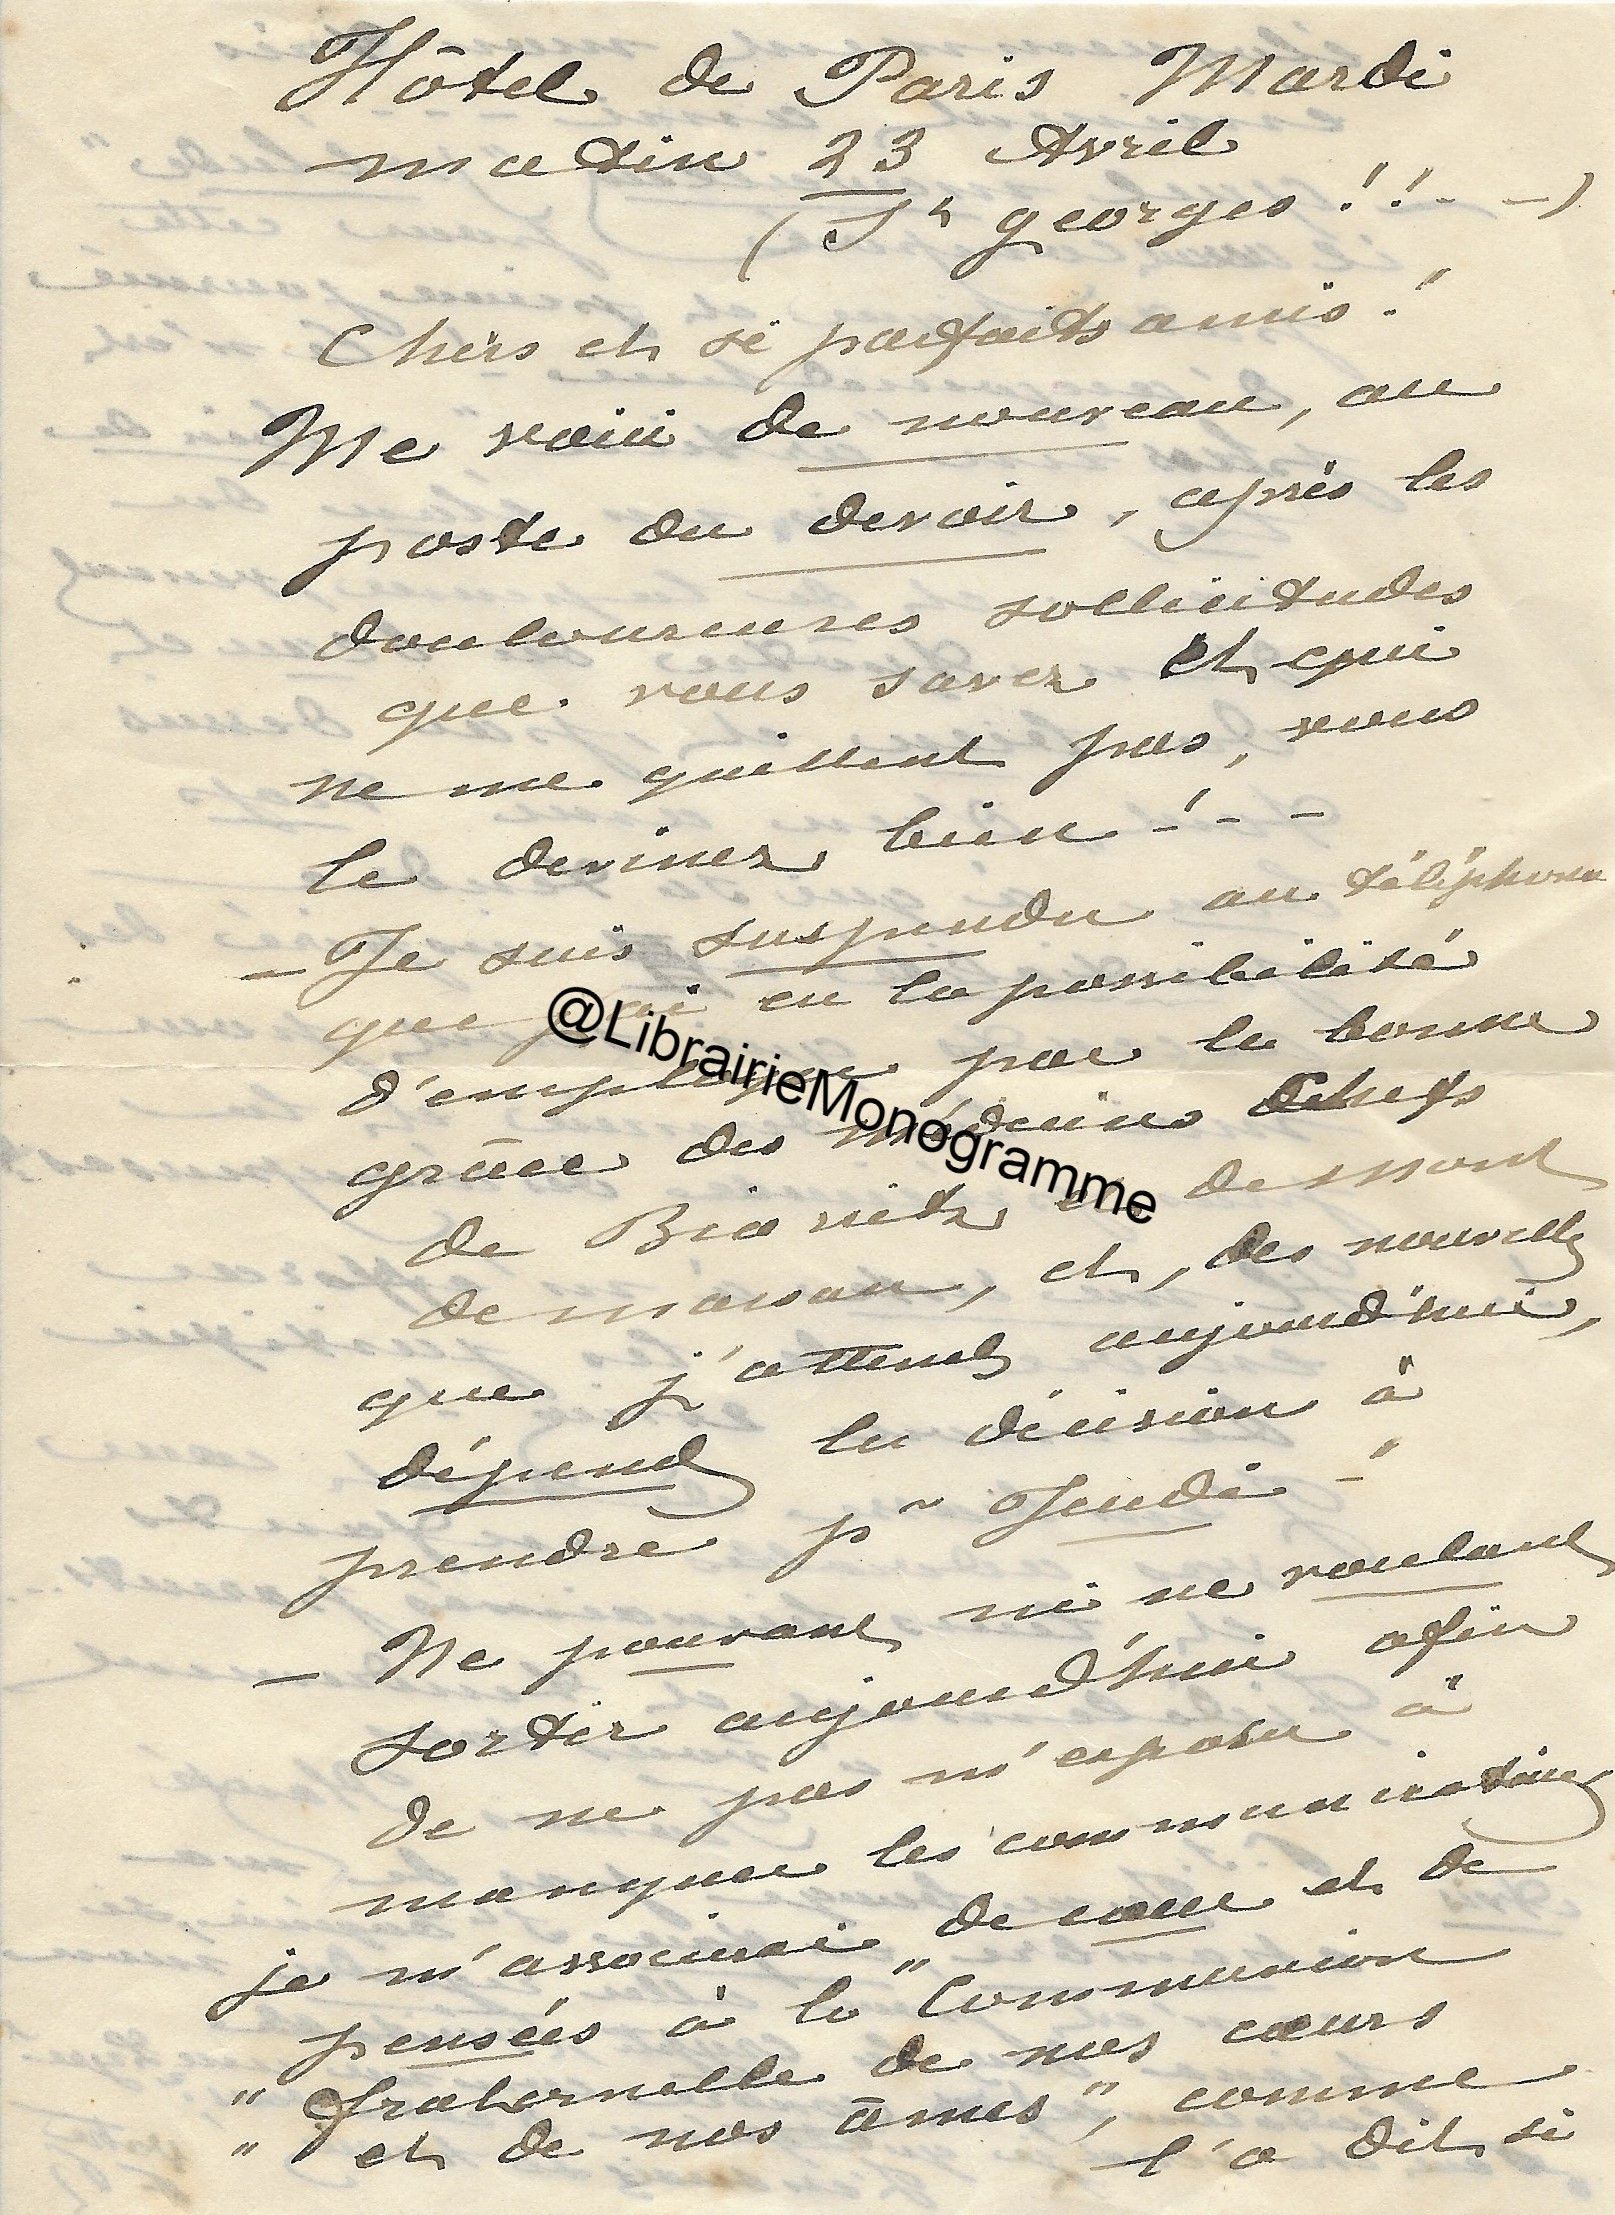 Hôtel de Paris Mardi
matin 23 Avril
(St georges!! - -)
Chers et si parfaits amis!
Me voici de nouveau, au
poste du devoir, après les
douloureuses sollicitudes
que vous savez et qui
ne me quittent pas, vous
le devinez bien! - -
— Je suis suspendu au téléphone
que j'ai eu la possibilité
d'employer par la bonne
grâce des médecins Chefs
de Biarritz et de Mont
de marsan, et, des nouvelles
que j'attends aujourd'hui,
dépend la décision à
prendre pr Jeudi -
— Ne pouvant ni ne voulant
sortir aujourd'hui afin
de ne pas m'exposer à
manquer les communications
je m'associerai de cœur et de
pensées à la "Communion
" fraternelle de nos cœurs
" et de nos âmes", comme
l'a dit si
@LibrairieMonogramme